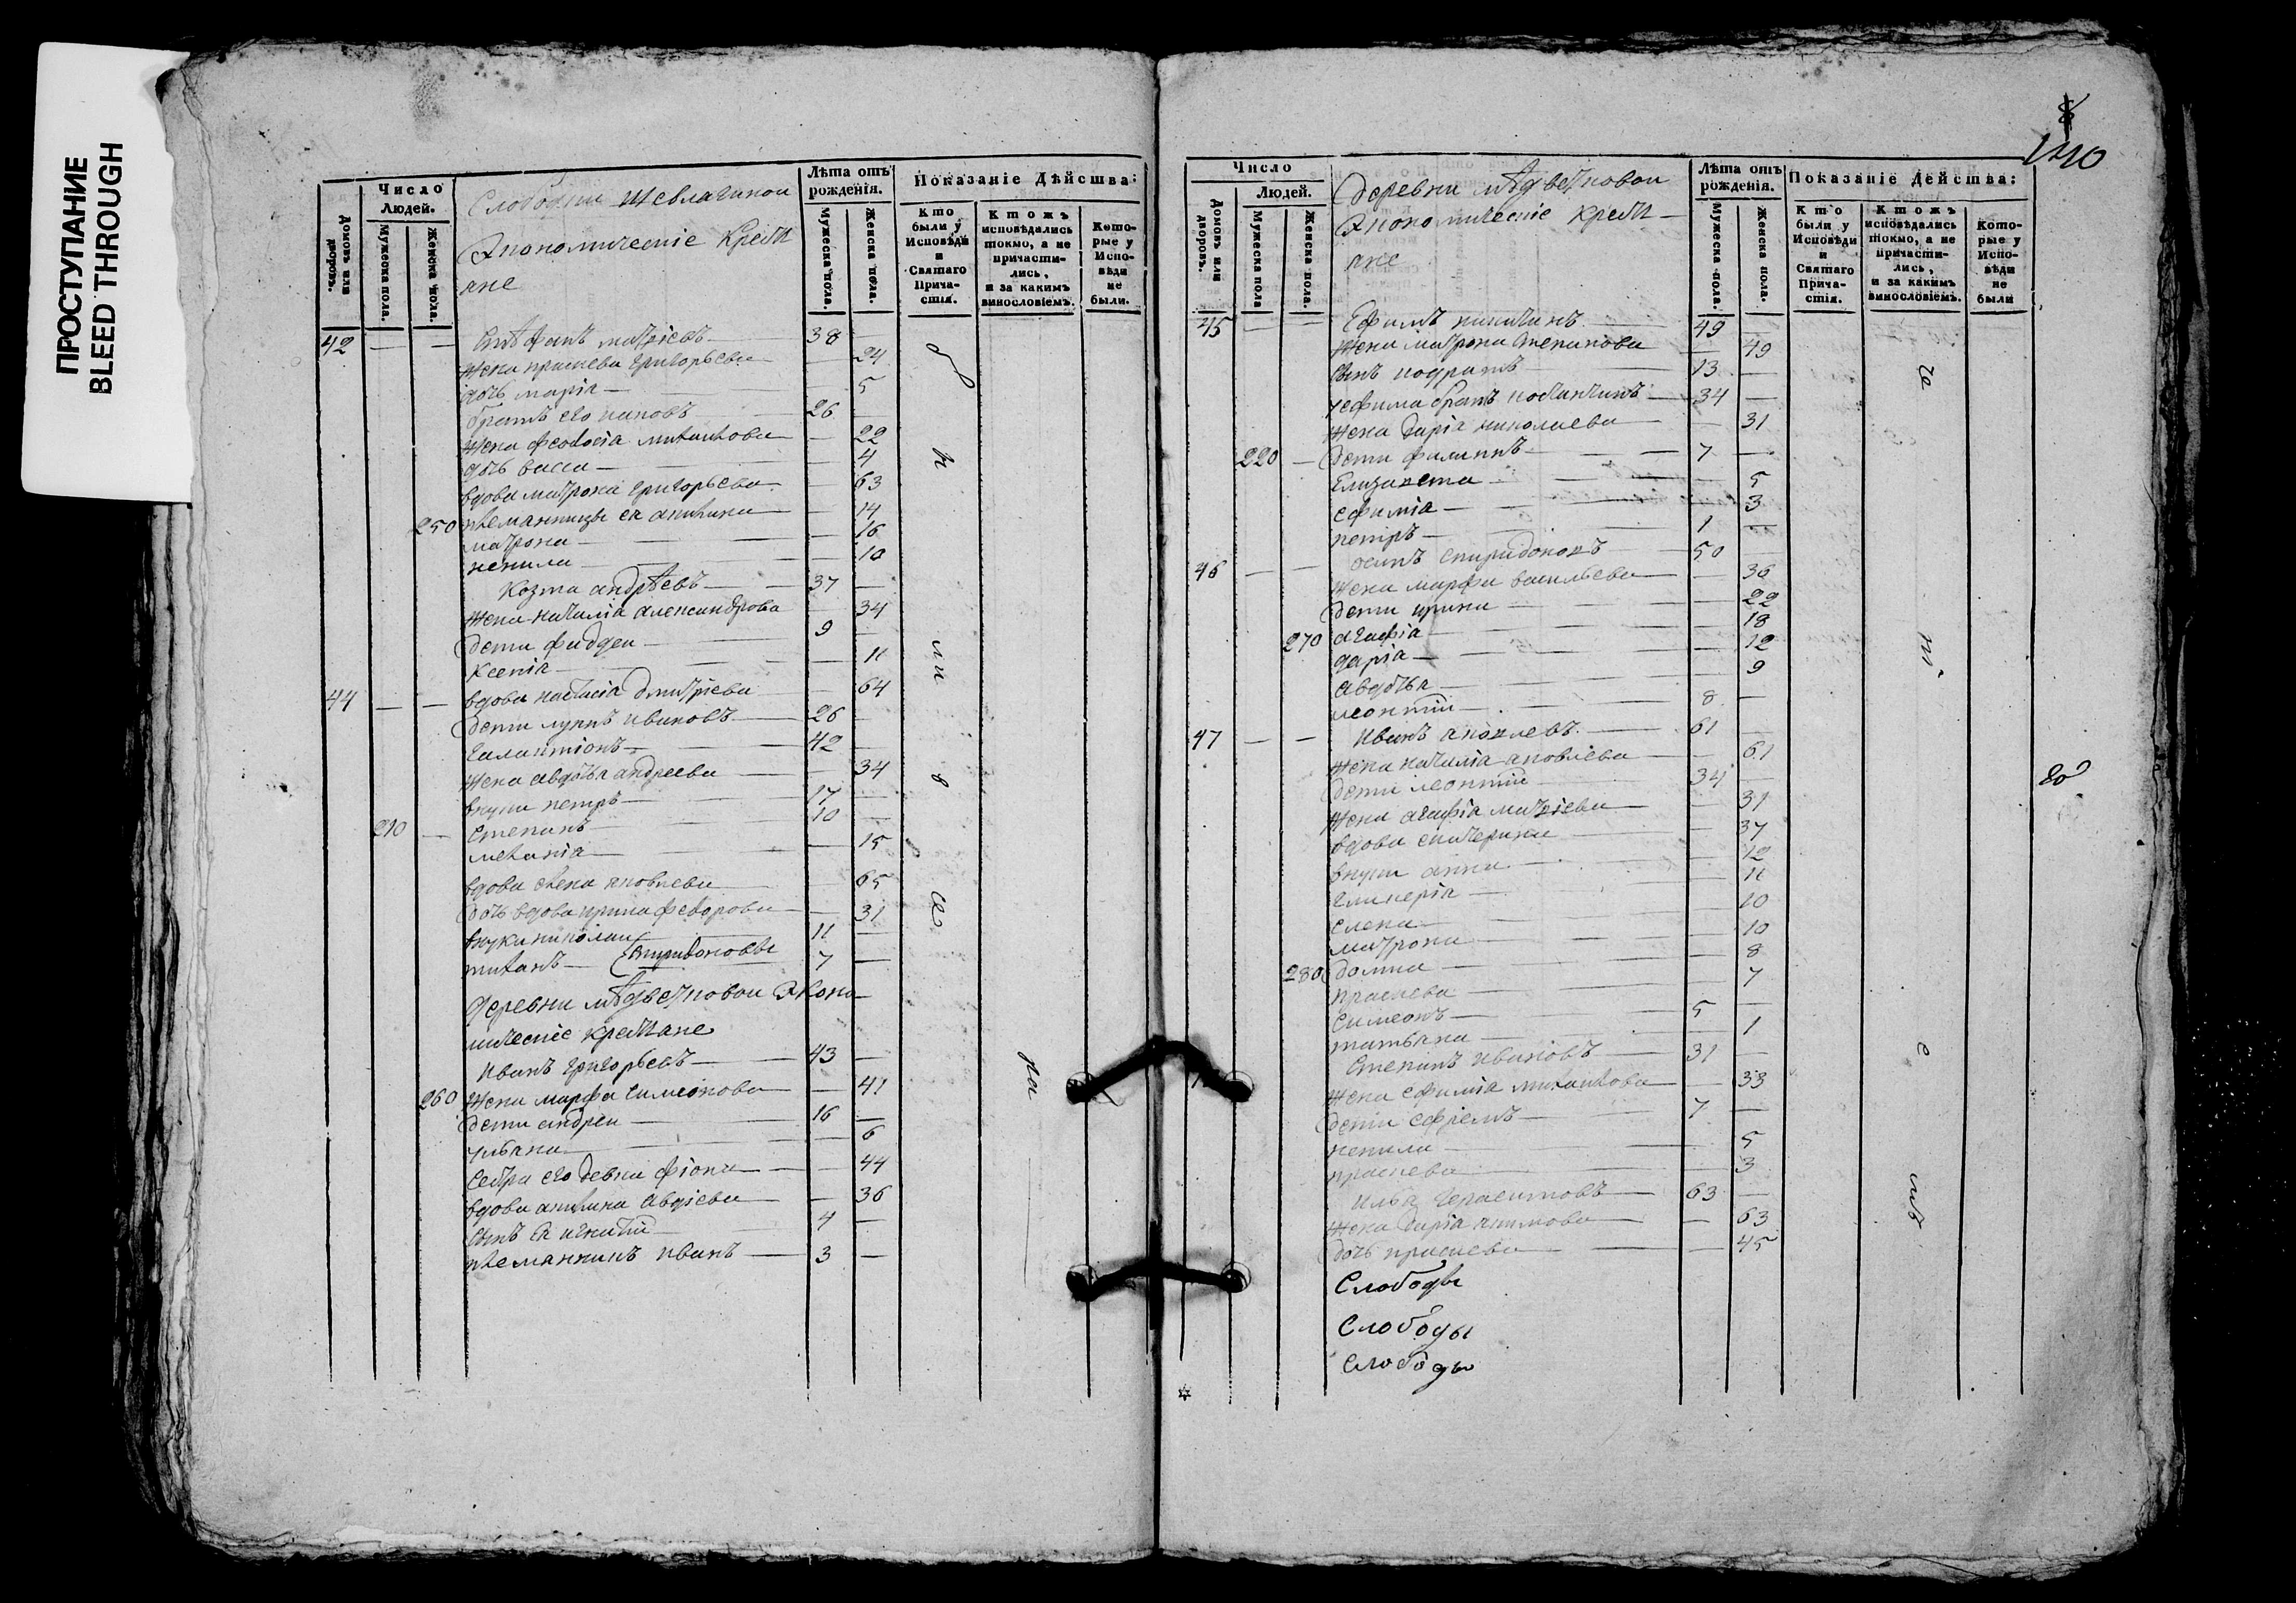 ПРОСТУПАНИЕ
BLEED THROUGH
Число
Людей.
Домовъ или дворовъ.
Мужеска пола.
Женска пола.
Слободки
Экономическіе Крестья
яне
Лѣта отъ рожденія.
Мужеска пола.
Женска пола.
Показаніе Дѣйства:
Кто были у Исповѣди и Святаго Прича-стія.
Ктожъ исповѣдались токмо, а не причасти-лись, и за какимъ винословіемъ.
Кото-рые у Испо-вѣди не были.
42 — — Стефанъ 38 —
жена прасковa григорьева — 24
дочь марія — — 5
братъ его 26 —
жена феодосія — 22
дочь васса — — 4
вдова матрона григорьева — 63
250 племянницы ея акилина — 14
матрона — — 16
ненила — — 10
Козма андрѣевъ — 37 —
жена наталiа александрова — 34
дети фаддеи — 9 —
Ксенія — — 11
44 — — вдова настасіа дмитріева — 64
дети лукиъ ивановъ — 26 —
галактіонъ — 42 —
жена авдотья андреева — 34
внуки петръ — 17 —
210 — Степанъ — 10 —
меланіа — — 15
вдова яковлева — 65
дочь вдова ирина федорова — 31
внуки николаи — 11 —
Спиридоновы 7 —
деревни Эконо-
мическіе крестьяне
Иванъ григорьевъ — 43 —
260 жена марфа симеонова — 41
дети андреи — 16 —
ульяна — — 6
сестра его девка фіона — 44
вдова акилина авдіева — 36
сынъ ея игнатій — 4 —
племянникъ иванъ — 3 —
140
Число
Людей.
Домовъ или дворовъ.
Мужеска пола
Женска пола.
Деревни
Экономическіе Крестья-
яне
Лѣта отъ рожденія.
Мужеска пола.
Женска пола.
Показаніе Дѣйства:
Кто были у Исповѣди и Святаго Прича-стія.
Ктожъ исповѣдались токмо, а не причасти-лись, и за какимъ винословіемъ.
Кото-рые у Испо-вѣди не были
45 — — Ефимъ никитинъ 49 —
жена матрона — 49
сынъ кодратъ — 13 —
у ефима братъ — 34 —
жена даріа николаева — 31
220 — дети филиппъ — 7 —
Елизавета — — 5
ефиміа — — 3
петръ — 1 —
46 — — осипъ спиридоновъ 50 —
жена марфа васильева — 36
дети ирина — — 22
270 агафіа — — 18
даріа — — 12
авдотья — — 9
леонтій — 8 —
47 — — Иванъ яковлевъ 61 —
жена наталіа яковлева — 61
дети леонтій — 34 —
жена агафіа — 31
вдова екатерина — 37
внуки анна — — 12
гликеріа — — 11
елена — — 10
матрона — — 10
280 домна — — 8
прасковa — — 7
симеонъ — 5 —
татьяна — — 1
Степанъ ивановъ 31 —
жена ефиміа михаилова — 33
дети ефремъ — 7 —
ненила — — 5
прасковa — — 3
илья герасимовъ — 63 —
жена даріа — 63
дочь прасковa — 45
Слободы
Слободы
Слободы
80